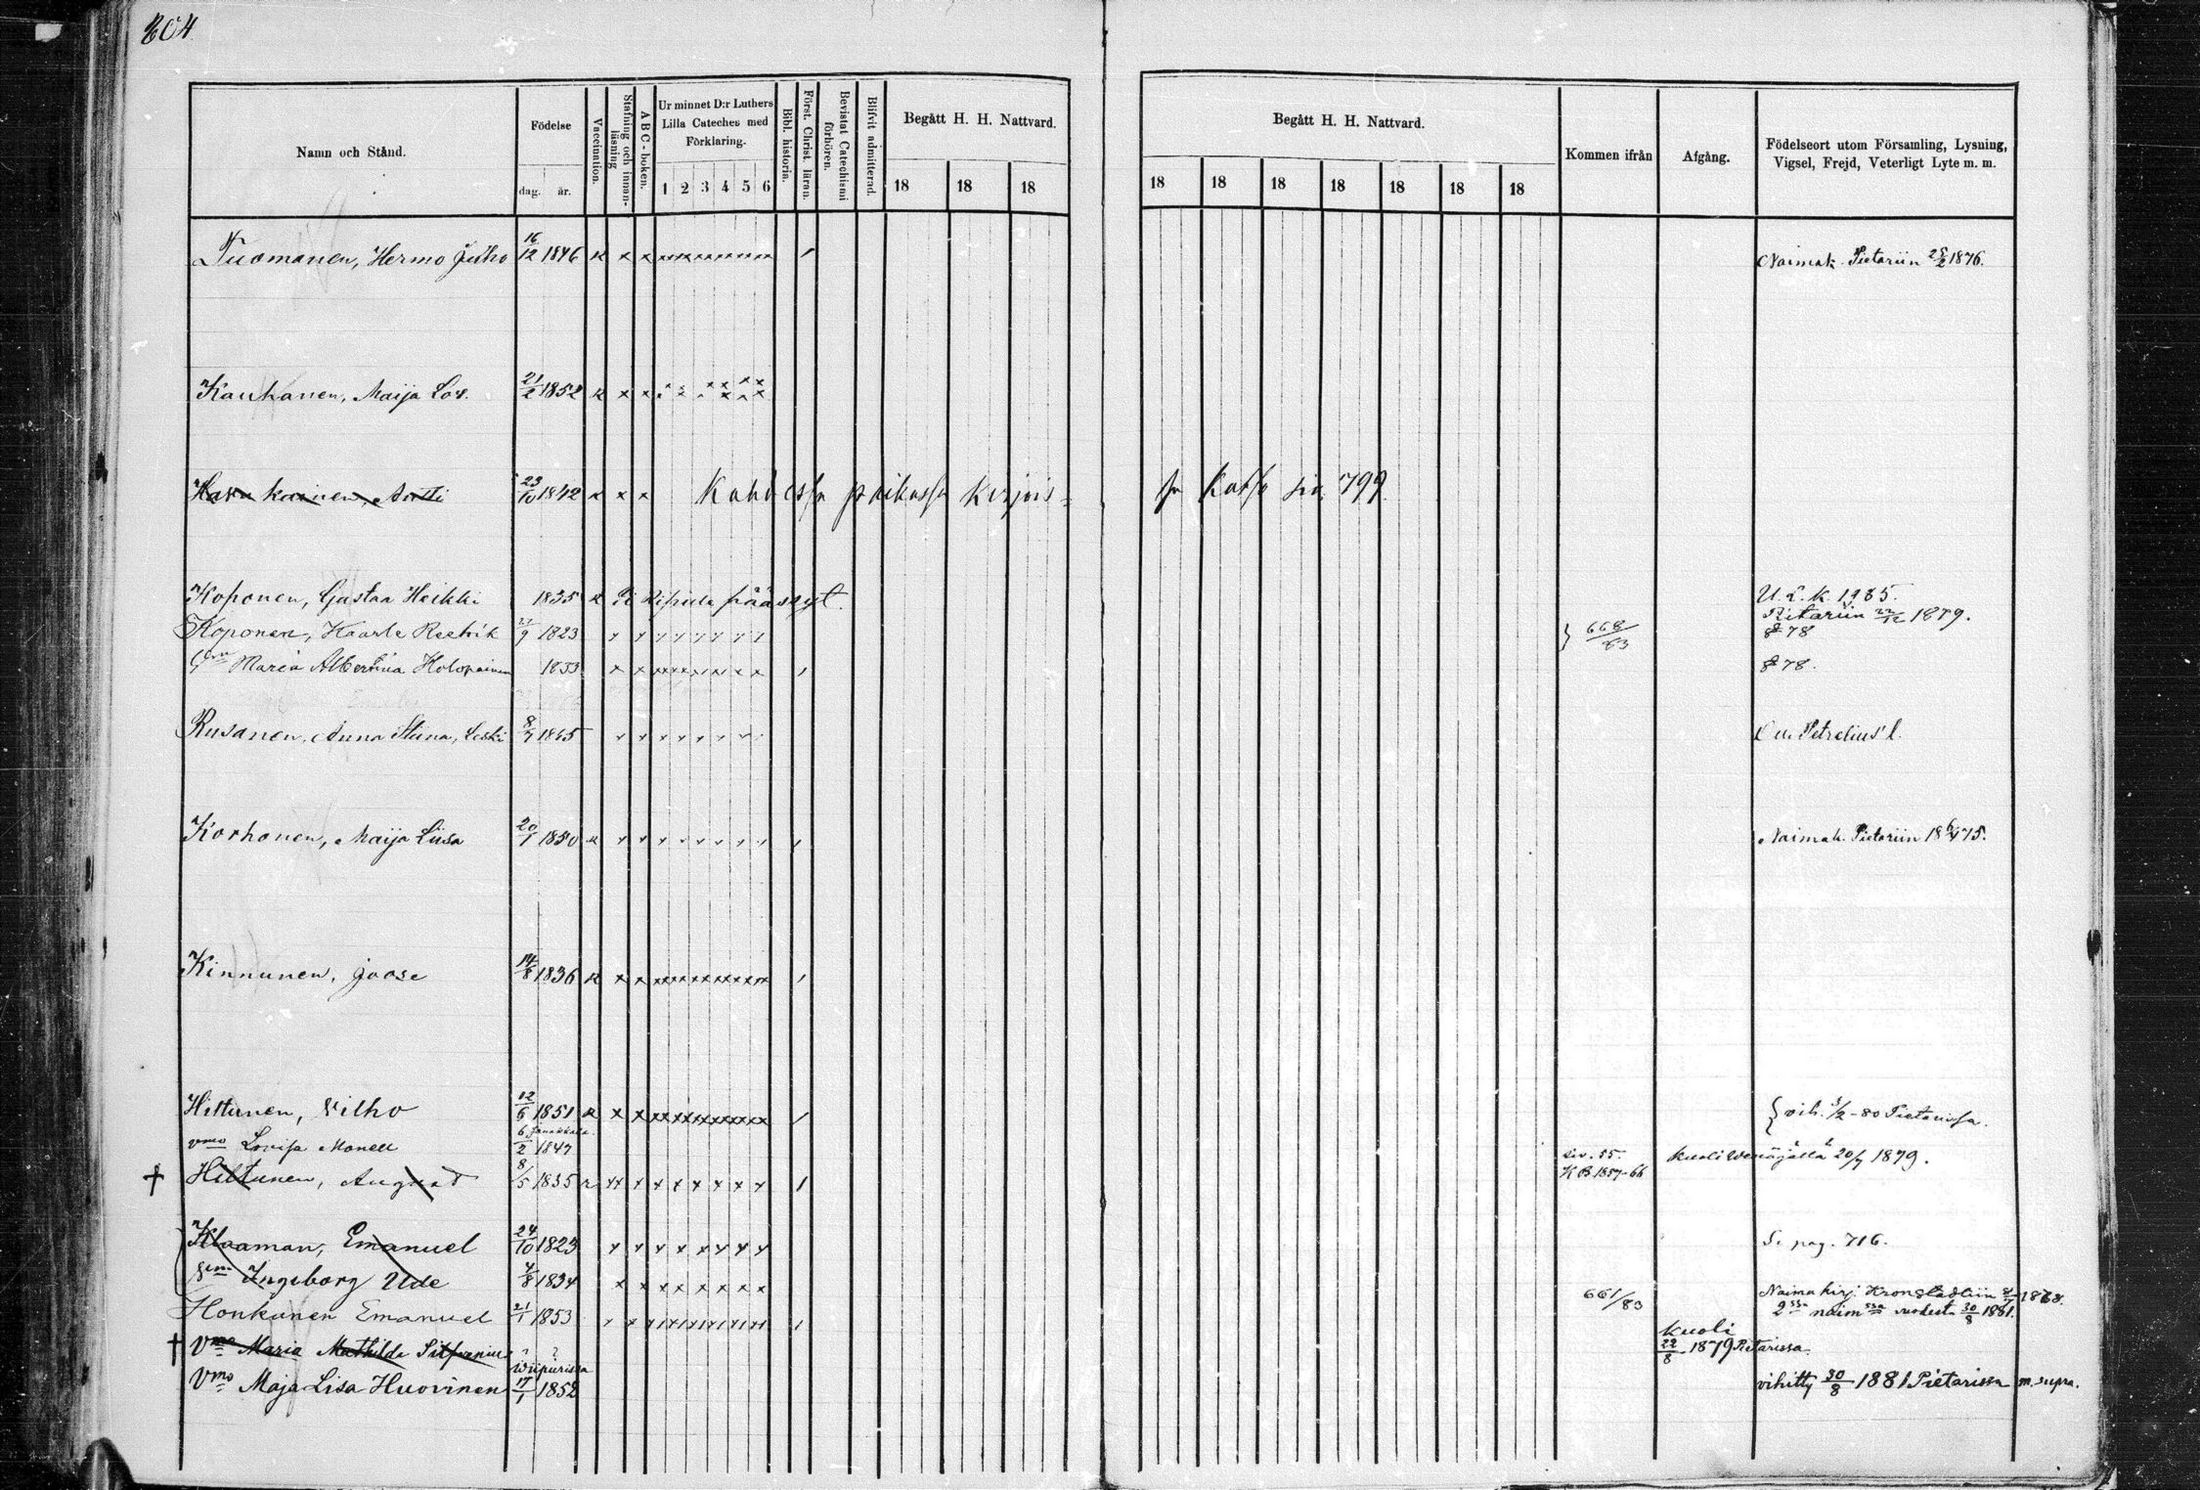 804
Namn och Stånd.
Födelse
dag. år.
Vaccination.
Stafning och innan-
läsning
ABC-boken.
Ur minnet D:r Luthers
Lilla Cateches med
Förklaring.
1 2 3 4 5 6
Bibl. historia.
Först. Christ. läran.
Bevistat Catechismi
förhören.
Blifvit admitterad.
Begått H. H. Nattvard.
18 18 18
Begått H. H. Nattvard.
18 18 18 18 18 18 18
Kommen ifrån
Afgång.
Födelseort utom Församling, Lysning,
Vigsel, Frejd, Veterligt Lyte m. m.
Tuomanen, Hermo Juho 16/12 1846 Naimak. Pietariin 1876.
Kauhanen, Maija Lov. 21/2 1852
Antti 23/10 1842 Kahdessa paikassa kirjois- sa katso siv. 799
Koponen, Gustaa Heikki 1835 Ei ripille päässyt. U. E. K. 1985.
Pietariin 22/12 1879.
Koponen, Kaarle Reetrik 1823 668/83 78
Maria Albertina Holopainen 1833 78.
Rusanen, Anna Stiina, Leski 1865 Petrelius' l.
Korhonen, Maija Liisa 20/1 1850 Naimak. Pietariin 18 6/4 75.
Kinnunen, Joose 14/8 1836
Hiltunen, Vilho 12/6 1851 vih. 3/2 - 80 Pietarissa.
vmo Lovisa Monell 6/2 1847
† Hiltunen, August 8/5 1835 siv. 55. KB 1857-66 Kuoli Wenäjällä 20/7 1879.
Klaaman, Emanuel 24/10 1823 Se pag. 716.
Ingeborg Ude 4/8 1834
Honkanen Emanuel 21/1 1853 661/83 Naimakirj. Kronstadtiin 1878.
2ssa naim ssa vuodesta 30/8 1881.
† Vmo Maria Mathilda ? ? kuoli
22/8 1879 Pietarissa.
Wiipurissa
Vmo Maja Lisa Huovinen 17/1 1852 vihitty 30/8 1881 Pietarissa m. supra.